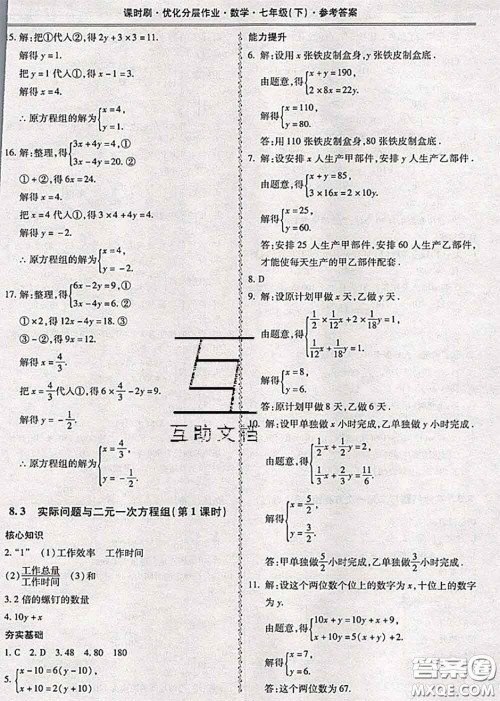 课时刷·优化分层作业·数学·七年级(下)·参考答案
15. 解:把①代人②,得 2y+3×3=11.
解得 y=1.
把 y=1 代人①,得 x=3+1.
解得 x=4.
∴ 原方程组的解为{x=4, y=1.
16. 解:整理,得{3x+4y=4,① 3x-4y=20.②
①+②,得 6x=24.
解得 x=4.
把 x=4 代人①,得 3×4+4y=4.
解得 y=-2.
∴ 原方程组的解为{x=4, y=-2.
17. 解:整理,得{6x-2y=9,① x-y=2.
①×2,得 12x-4y=18.③
③-②,得 9x=12.
解得 x=4/3.
把 x=4/3代人①,得 6×4/3-2y=9.
解得 y=-1/2.
∴ 原方程组的解为{x=4/3, y=-1/2.
8.3 实际问题与二元一次方程组(第1课时)
核心知识
2. “1” (1)工作效率 工作时间
(2)工作总量/工作时间 (3)和
3. 2 倍的螺钉的数量
4. 10y+x
夯实基础
1. C 2. D 3. 48 4. 80 180
5. {x-10=6(y-10), x+10=2(y+10)
能力提升
6. 解:设用 x 张铁皮制盒身,y 张铁皮制盒底.
由题意,得{x+y=190, 2×8x=22y.
解得{x=110, y=80.
答:用 110 张铁皮制盒身,80 张铁皮制盒底.
7. 解:设安排 x 人生产甲部件,安排 y 人生产乙部件.
由题意,得{x+y=85, 3×16x=2×10y.
解得{x=25, y=60.
答:安排 25 人生产甲部件,安排 60 人生产乙部件,
才能使每天生产的甲乙两种部件配套.
8. D
9. 解:设原计划甲做 x 天,乙做 y 天.
由题意,得{1/2×1/12x+2×1/18y=1, 1/12x+1/18y=1.
解得{x=8, y=6.
答:原计划甲做 8 天,乙做 6 天.
10. 解:设甲单独做 x 小时完成,乙单独做 y 小时完成.
由题意,得
解得{x=5/2, y=3/2.
答:甲单独做5/2小时完成,乙单独做3/2小时完成.
11. 解:设这个两位数个位上的数字为 x,十位上的数字
为 y.
由题意,得{10x+y=10y+x+9, x+10y=5(x+y)+2.
解得{x=7, y=6.
答:这个两位数为 67.
互助文档
答案圈
MXQE.COM